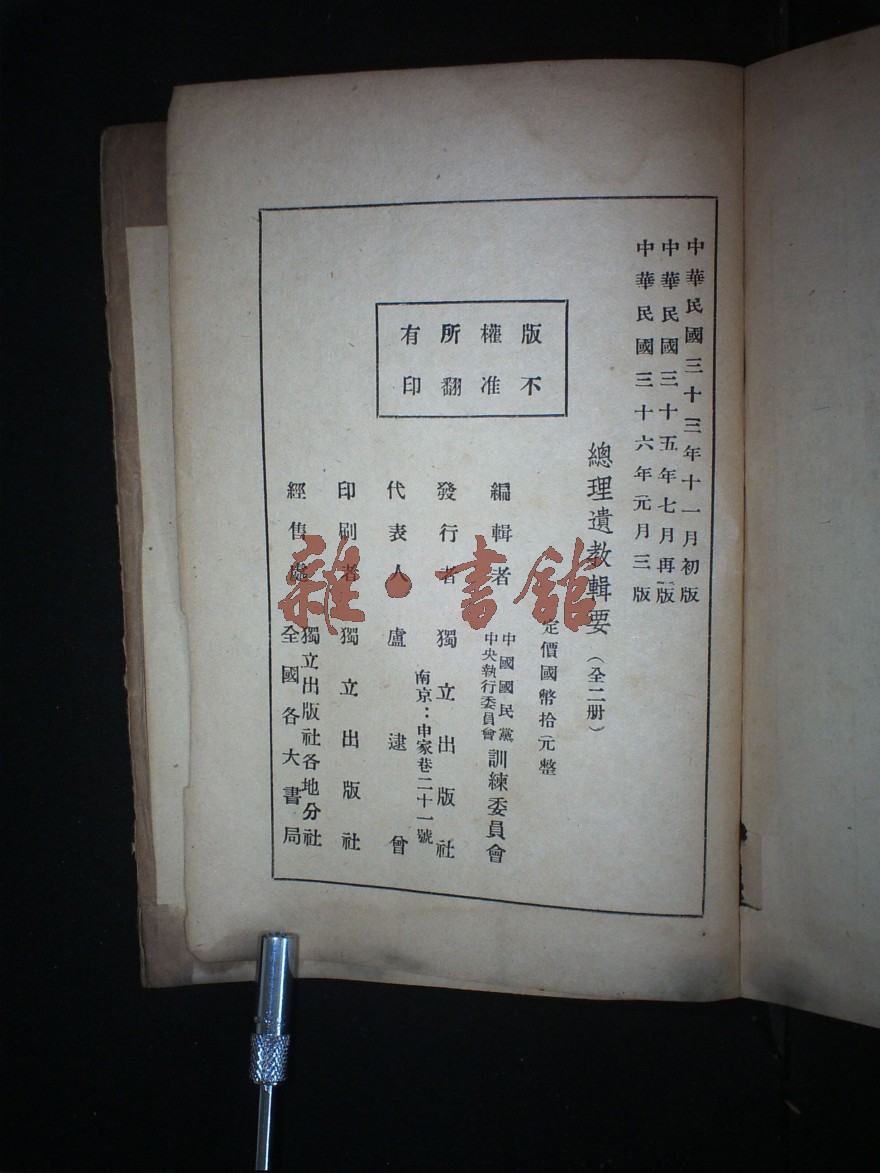 中華民國三十三年十一月初版
中華民國三十五年七月再版
中華民國三十六年元月三版
總理遺教輯要（全二册）
定價國幣拾元整
版權所有
不准翻印
編輯者
中國國民黨
中央執行委員會
訓練委員會
發行者 獨立出版社
南京：申家巷二十一號
代表人 盧逮曾
印刷者 獨立出版社
經售處
獨立出版社各地分社
全國各大書局
雜·書館